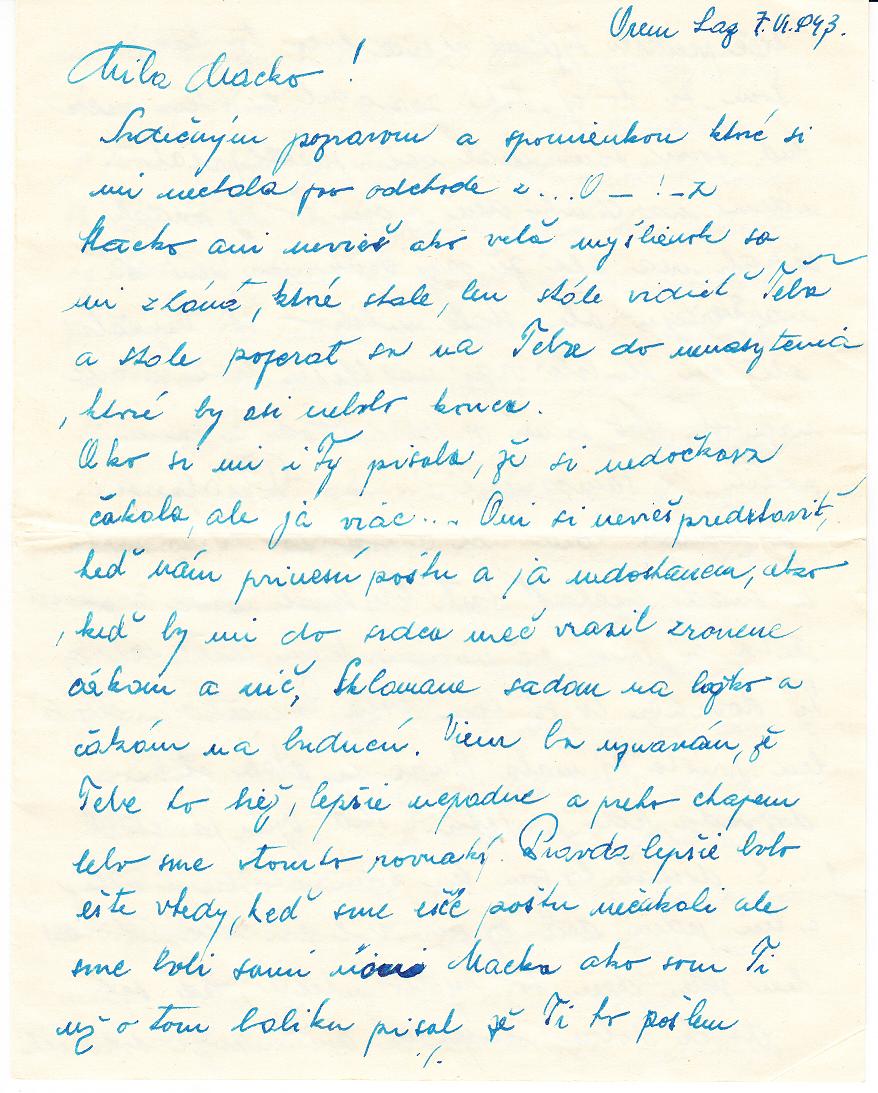 Orem Laz 7.VI.943.
Milá Macko!
Srdečným pozpravom a spomienkou ktoré si
mi nechala po odchode z ... O – ! – z
Macko ani nevieš ako velá myšlienok sa
mi zháňá, ktné stale, len stále vidieť Těba
a stale pozerat sa na Tebze do nenasytenia
, ktoré by asi nebolo konca.
Ako si mi i Ty pisala, že si nedočkava
čakala, ale já viac... Ani si nevieš predstaviť,
keď nám prinesú poštu a já nedostanem, ako
, keď by mi do srdca meč vrazil zronene
čákam a nič, Sklamane sadam na ložko a
čákám na buducú. Viem ba uznavám, že
Tebe to tiež, lepšie nepadne a preto chapem
lebo sme vtomto rovnaký. Pravda lepšie bolo
ešte vtedy, keď sme ešče poštu nečakali ale
sme boli sami Macka ako som Ti
už o tom baliku pisal že Ti to pošlem
./.